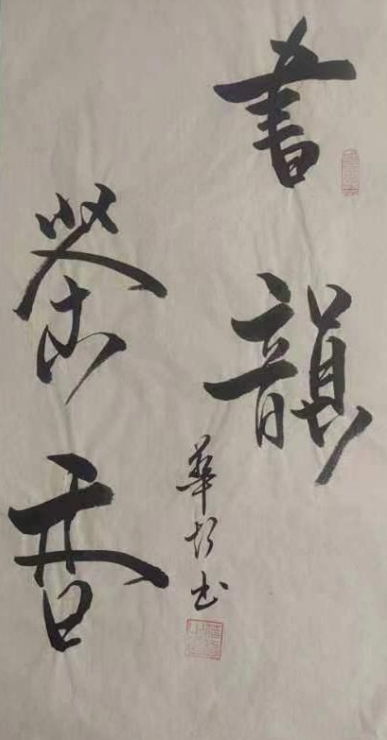 書韻
茶香
華
书